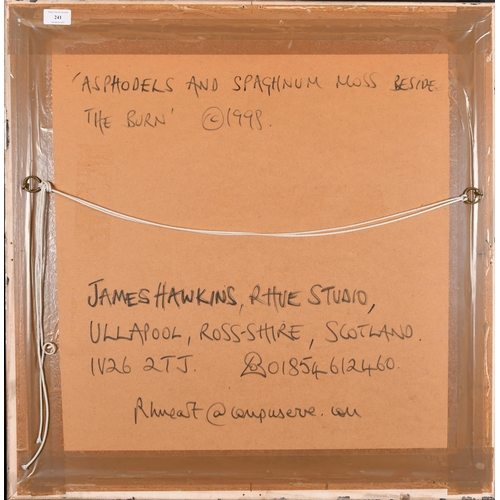 241
'ASPHODELS AND SPAGHNUM MOSS BESIDE
THE BURN' ©1998.
JAMES HAWKINS, RHUE STUDIO,
ULLAPOOL, ROSS-SHIRE, SCOTLAND.
IV26 2TJ. 01854612460.
Rhueart@compuserve.com